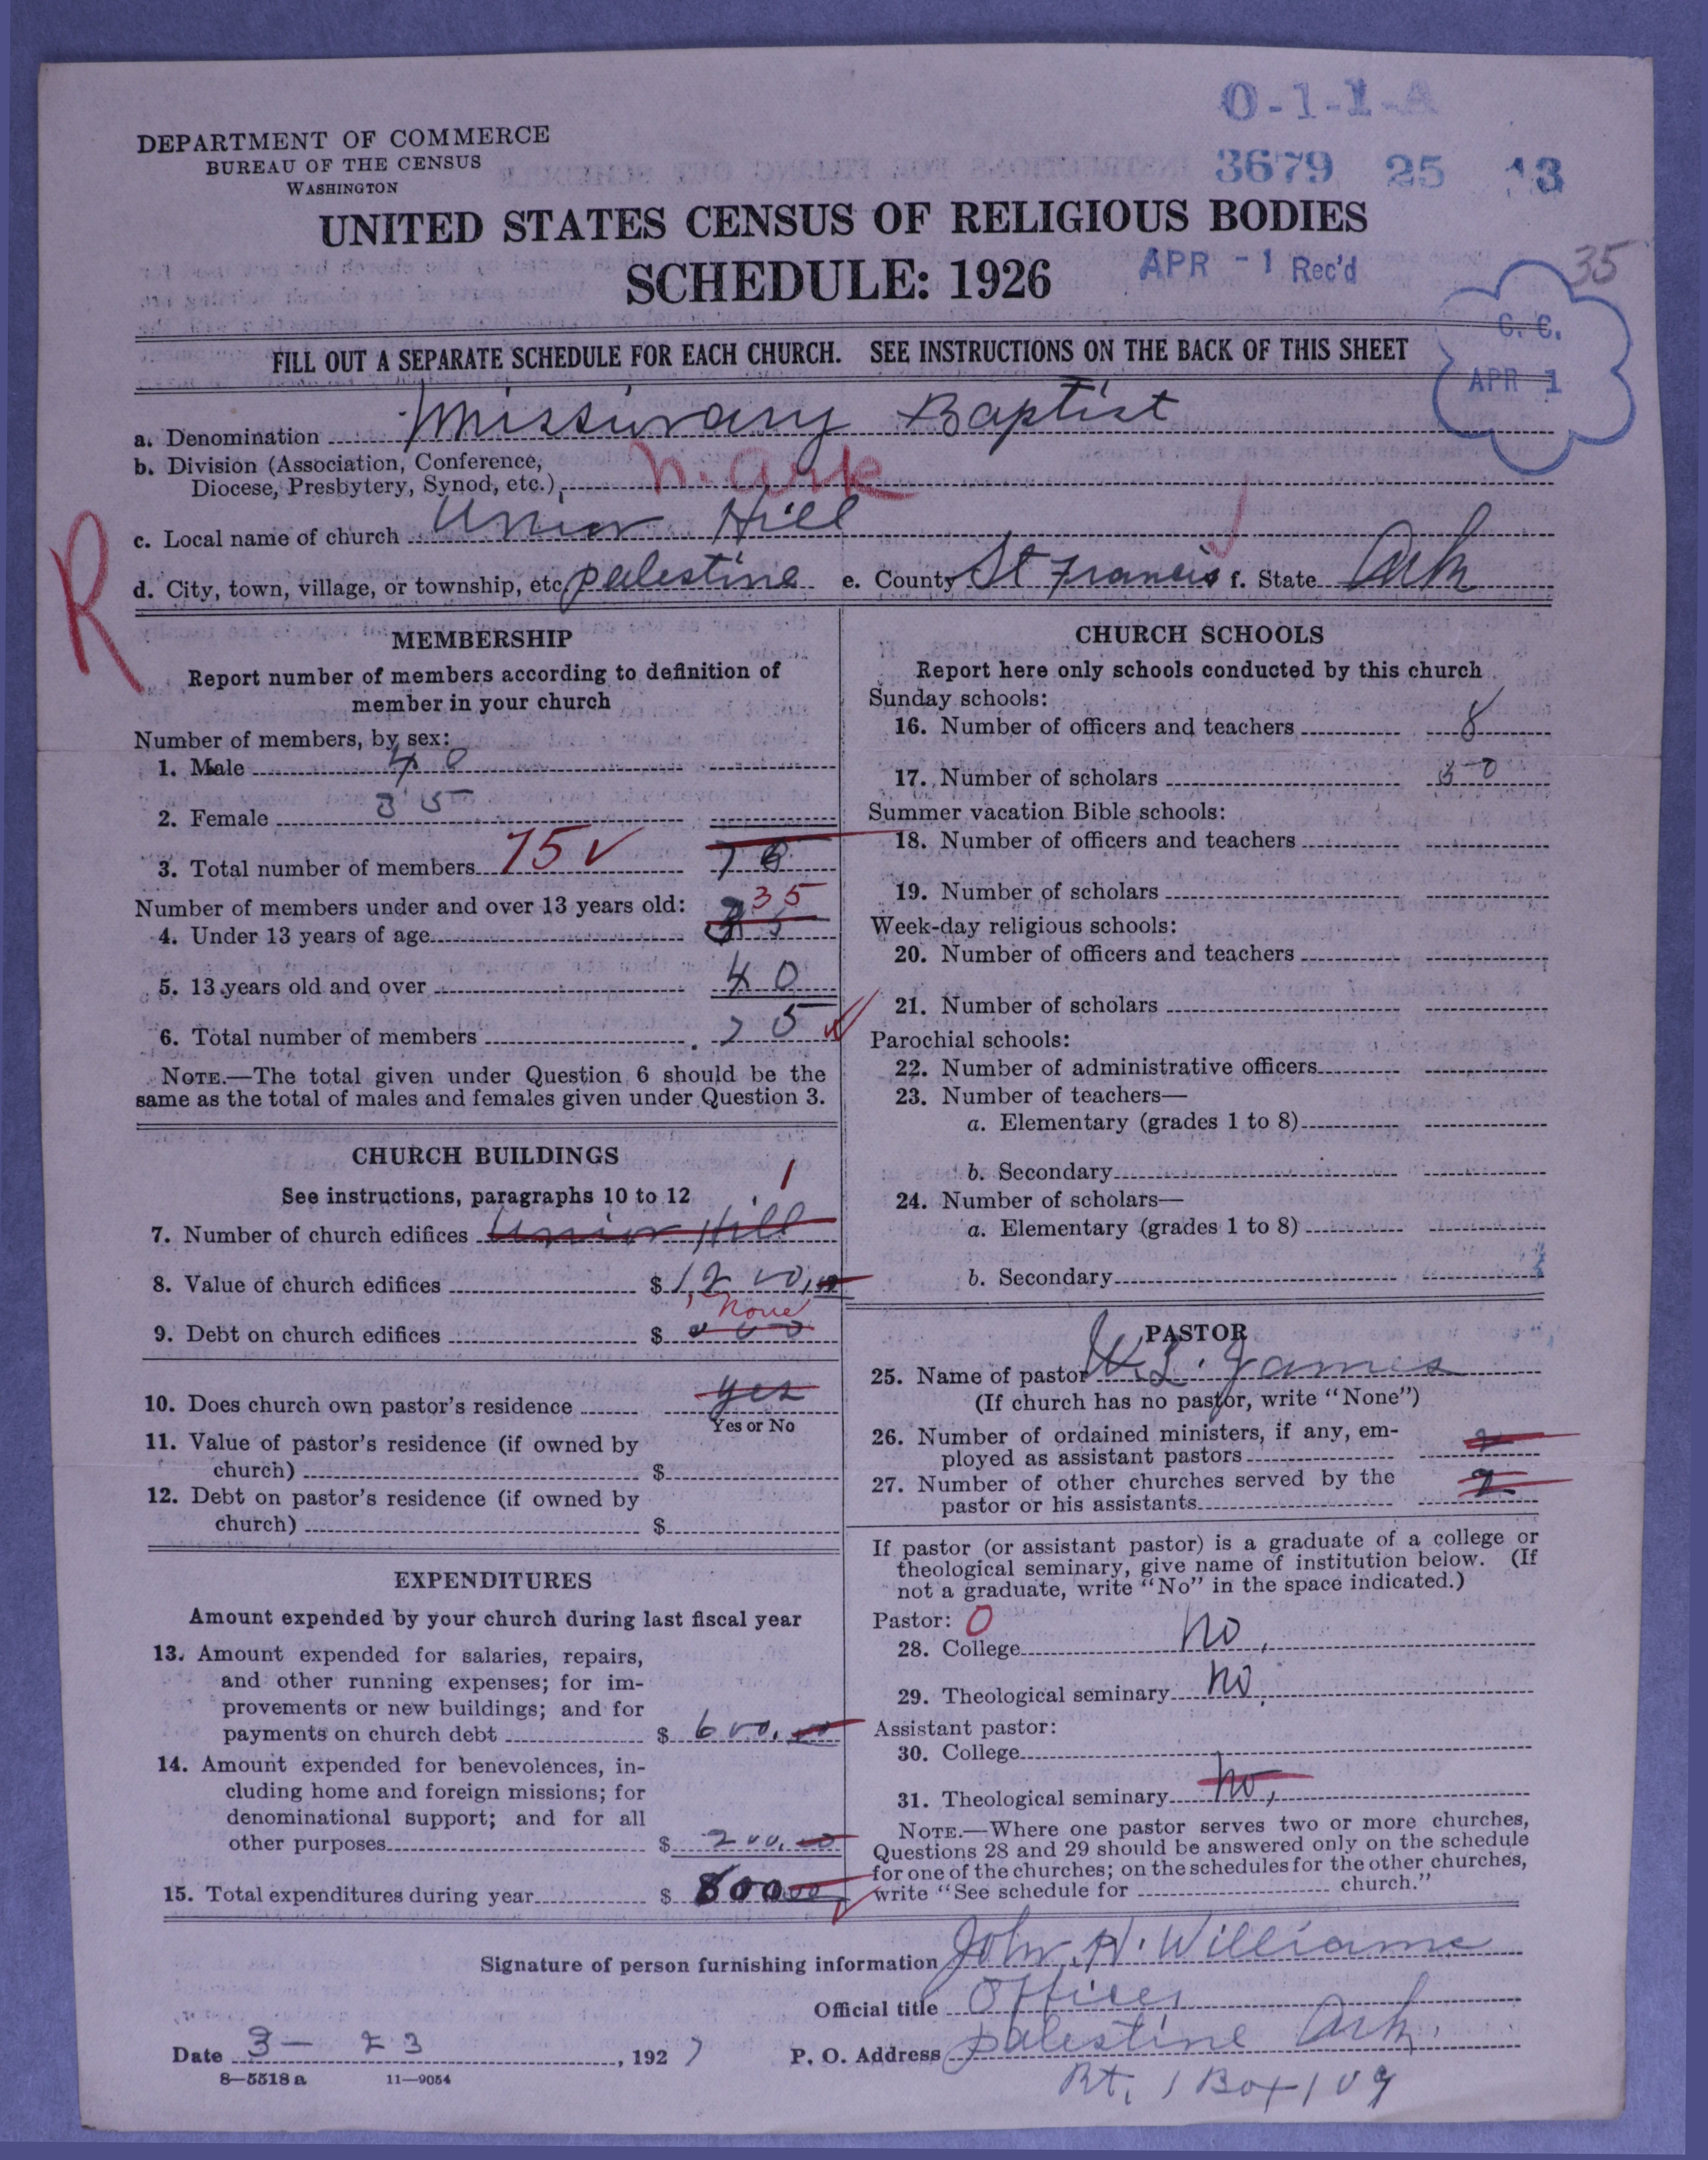 O-1-1-A
DEPARTMENT OF COMMERCE
BUREAU OF THE CENSUS
WASHINGTON
3679 25 13
UNITED STATES CENSUS OF RELIGIOUS BODIES
SCHEDULE: 1926
APR -1 Rec'd
35
C. C.
APR 1
FILL OUT A SEPARATE SCHEDULE FOR EACH CHURCH. SEE INSTRUCTIONS ON THE BACK OF THIS SHEET
a. Denomination Missionary Baptist
b. Division (Association, Conference,
Diocese, Presbytery, Synod, etc.) N. Ark
c. Local name of church Union Hill
R
d. City, town, village, or township, etc. Palestine e. County St Francis f. State Ark
MEMBERSHIP
Report number of members according to definition of
member in your church
Number of members, by sex:
1. Male 40
2. Female 35
3. Total number of members 75 ✓ 75
Number of members under and over 13 years old: 35
4. Under 13 years of age 35
5. 13 years old and over 40
6. Total number of members 75
NOTE.—The total given under Question 6 should be the
same as the total of males and females given under Question 3.
CHURCH BUILDINGS
See instructions, paragraphs 10 to 12 1
7. Number of church edifices Union Hill
8. Value of church edifices $ 1,200.00
None
9. Debt on church edifices $ 000
10. Does church own pastor's residence yes
Yes or No
11. Value of pastor's residence (if owned by
church) $
12. Debt on pastor's residence (if owned by
church) $
EXPENDITURES
Amount expended by your church during last fiscal year
13. Amount expended for salaries, repairs,
and other running expenses; for im-
provements or new buildings; and for
payments on church debt $ 600.00
14. Amount expended for benevolences, in-
cluding home and foreign missions; for
denominational support; and for all
other purposes $ 200.00
15. Total expenditures during year $ 800.00
CHURCH SCHOOLS
Report here only schools conducted by this church
Sunday schools:
16. Number of officers and teachers 8
17. Number of scholars 30
Summer vacation Bible schools:
18. Number of officers and teachers
19. Number of scholars
Week-day religious schools:
20. Number of officers and teachers
21. Number of scholars
Parochial schools:
22. Number of administrative officers
23. Number of teachers—
a. Elementary (grades 1 to 8)
b. Secondary
24. Number of scholars—
a. Elementary (grades 1 to 8)
b. Secondary
PASTOR
25. Name of pastor W. L. James
(If church has no pastor, write "None")
26. Number of ordained ministers, if any, em-
ployed as assistant pastors 2
27. Number of other churches served by the
pastor or his assistants 2
If pastor (or assistant pastor) is a graduate of a college or
theological seminary, give name of institution below. (If
not a graduate, write "No" in the space indicated.)
Pastor: 0
28. College No.
29. Theological seminary No.
Assistant pastor:
30. College
31. Theological seminary No.
NOTE.—Where one pastor serves two or more churches,
Questions 28 and 29 should be answered only on the schedule
for one of the churches; on the schedules for the other churches,
write "See schedule for church."
Signature of person furnishing information John H. Williams
Official title Officer
Date 3- 23, 1927 P. O. Address Palestine Ark.
8—5518 a 11—9054
Rt. 1 Box 109